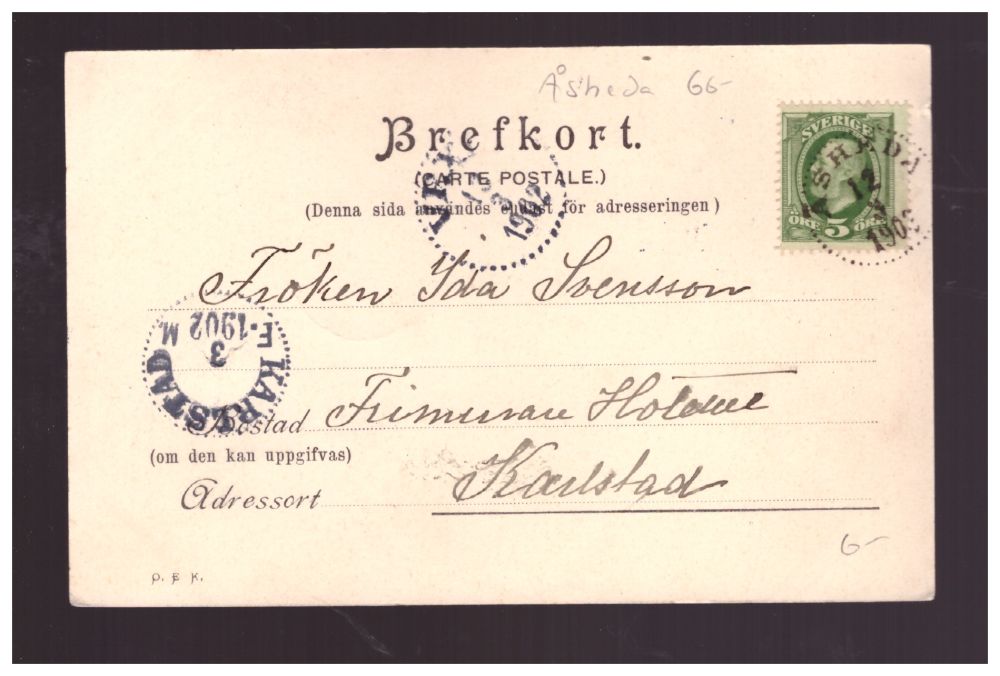 Åsheda 66-
Brefkort.
(CARTE POSTALE.)
(Denna sida användes endast för adresseringen)
SVERIGE
ÖRE 5 ÖRE
ÅSHEDA
12
1902
1902
Fröken Ida Svensson
KARLSTAD
3
F.1902 M
Bostad Frimurare Hotellet
(om den kan uppgifvas)
Adressort Karlstad
6-
O. E. K.